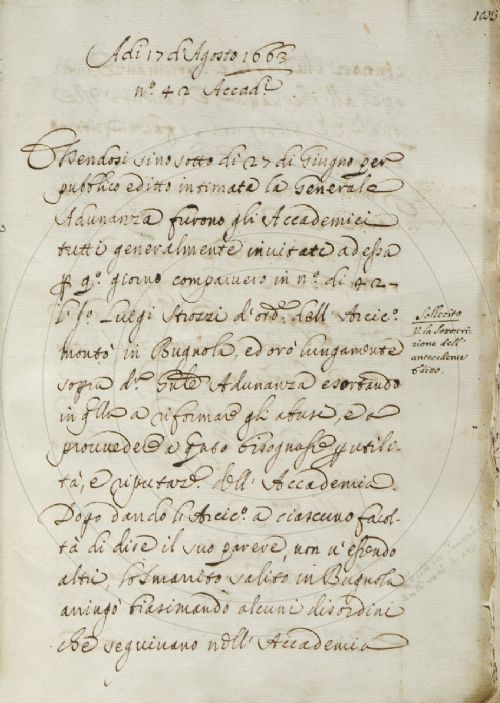 Adi 17 di Agosto 1663
nº. 42 Accad.ⁱ
Havendosi sino sotto di 27 di Giugno per
pubblico editto intimata la Generale
Adunanza furono gli Accademici
tutti generalmente invitati ad essa
giorno comparvero in nº. di 42 -
Luigi Strozzi d'ord.ᵉ dell' Arcicº.
montò in Bugnola, ed orò lungamente
sopra d.ᵃ Adunanza esortando
in a riformare gli abusi, e a
provvedere a bisognasse utili-
tà, e riputaz.ᵉ dell' Accademia.
Dopo dando l'Arcicº. a ciascuno facol-
tà di dire il suo parere, non v'essendo
altri, lo Smarrito salito in Bugnola
aringò biasimando alcuni disordini
che seguivano nell' Accademia
Sollecito
dell'
antecedente